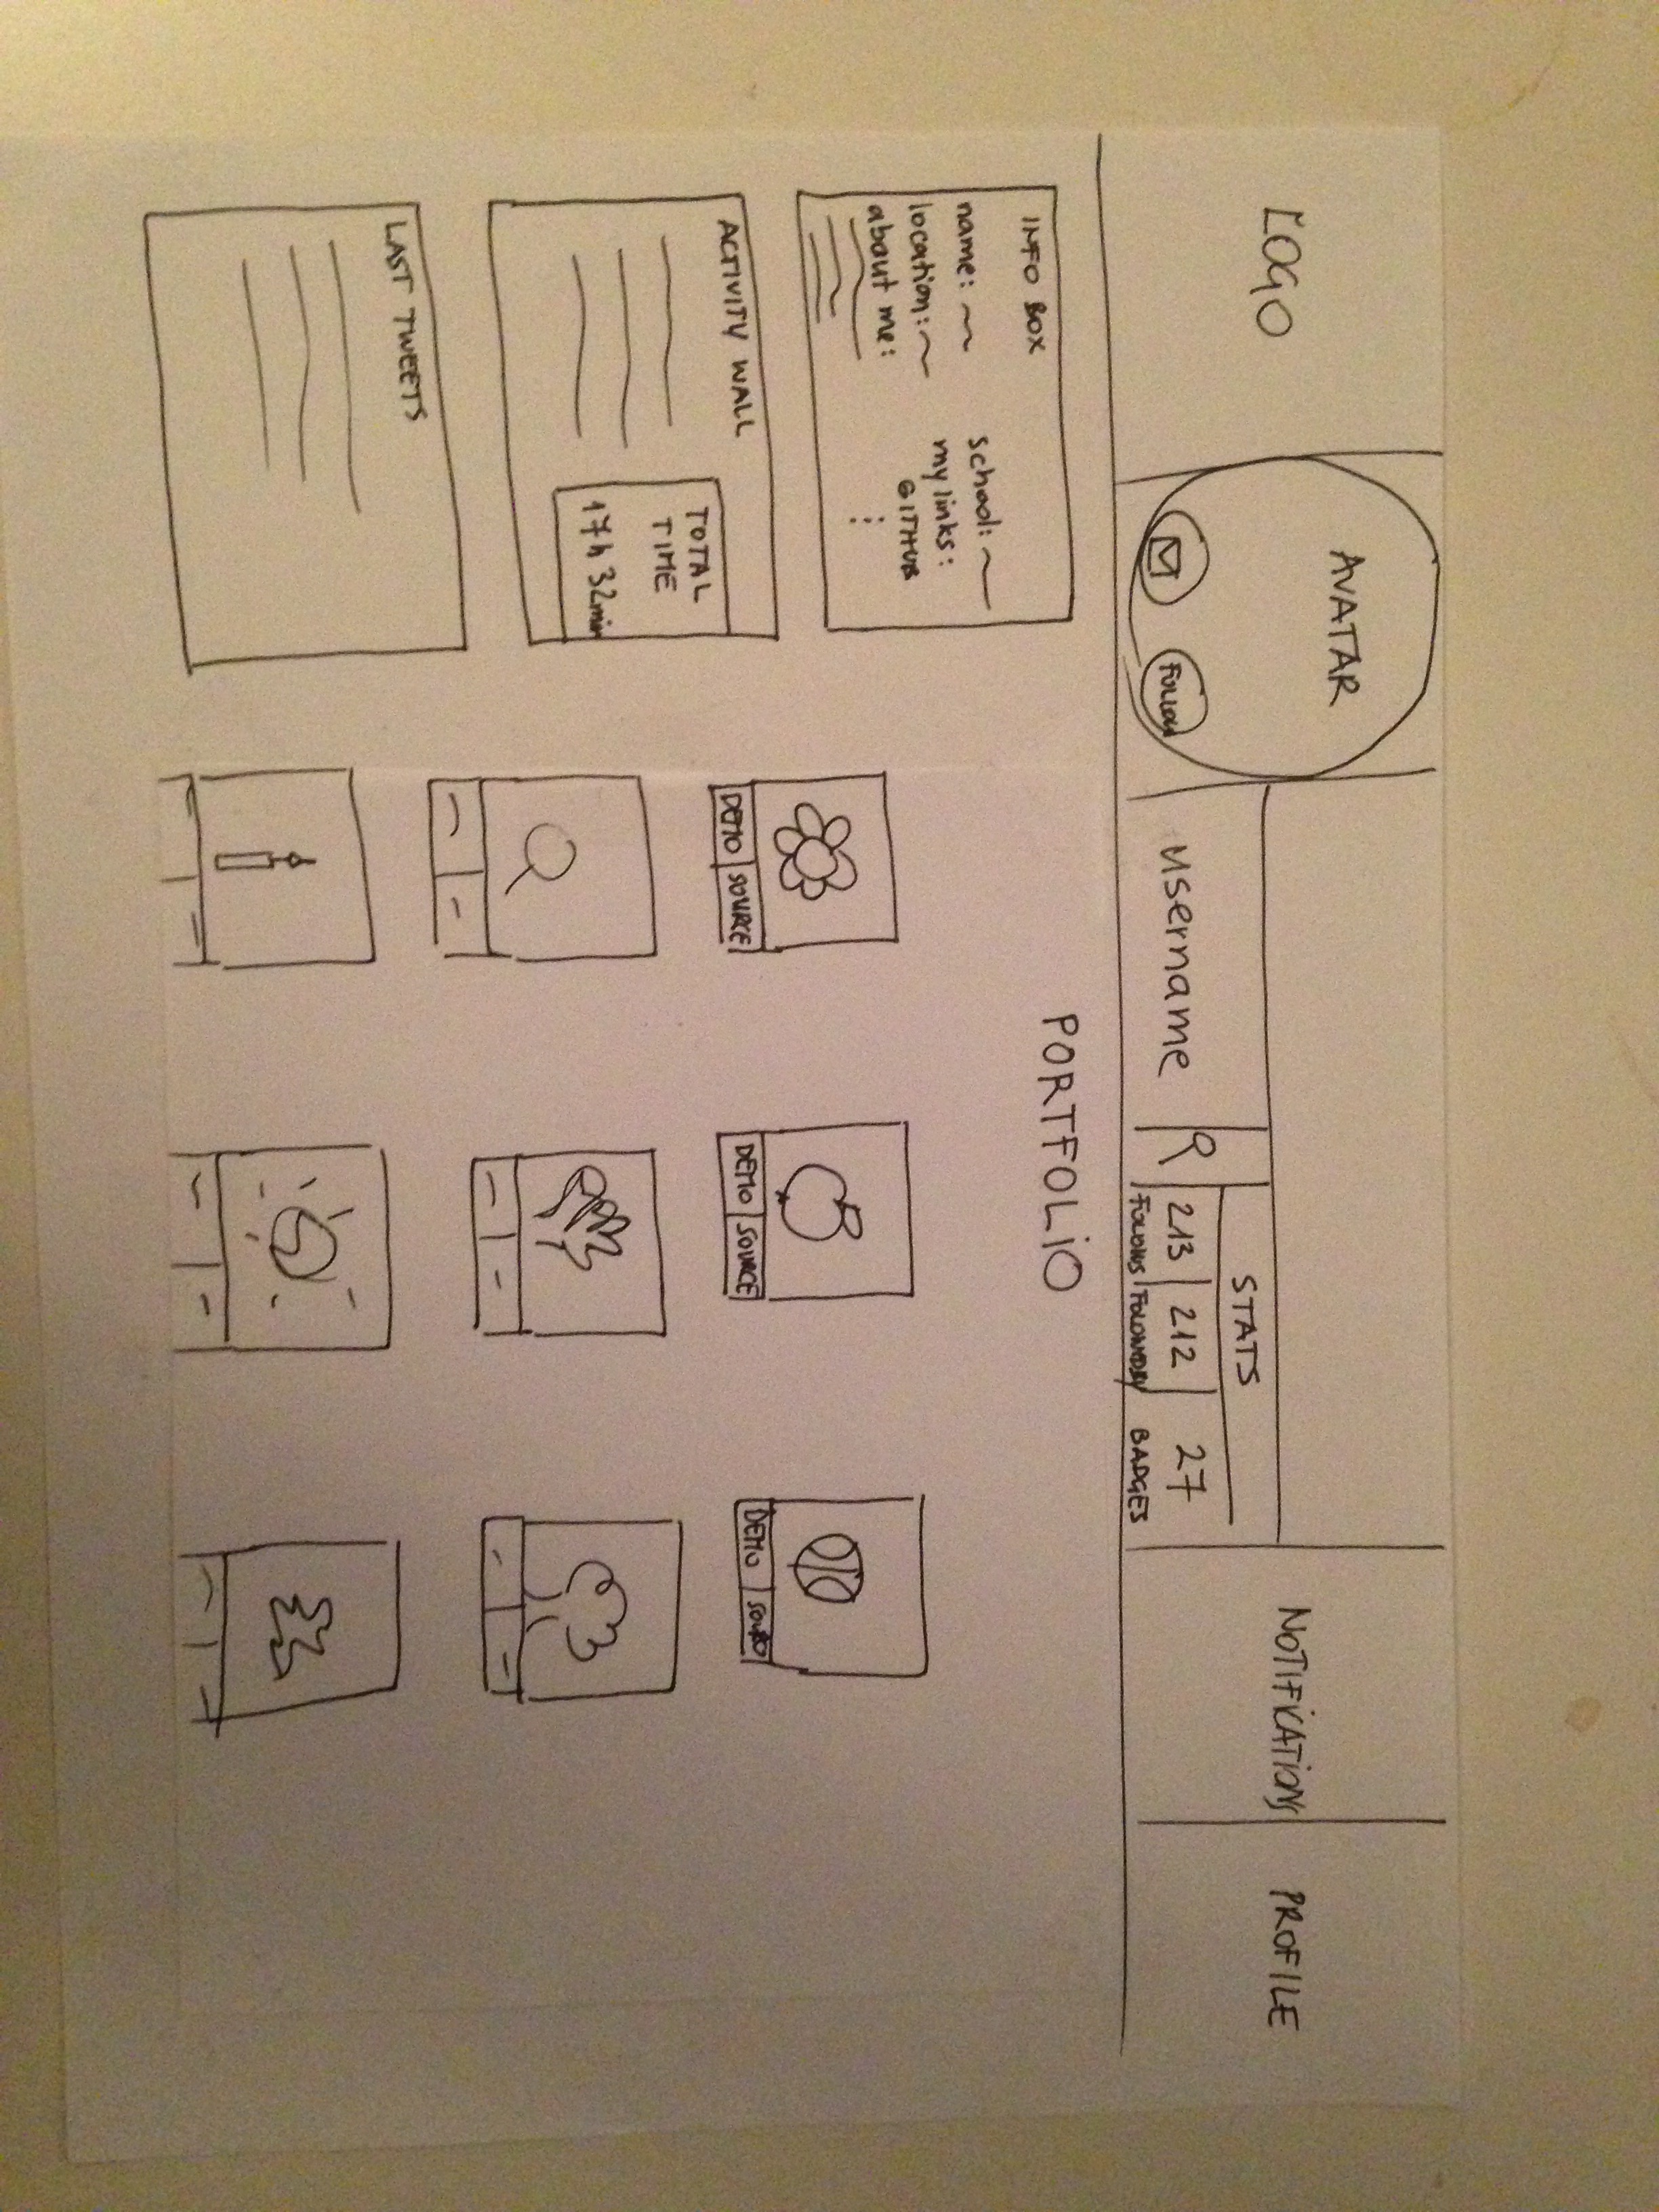 LOGO
AVATAR
FOLLOW
Username
R
STATS
213
212
27
FOLLOWS
FOLLOWEDBY
BADGES
NOTIFICATIONS
PROFILE
INFO BOX
name:
location:
about me:
school:
my links:
GITHUB
ACTIVITY WALL
TOTAL
TIME
17h 32min
LAST TWEETS
PORTFOLIO
DEMO SOURCE
DEMO SOURCE
DEMO